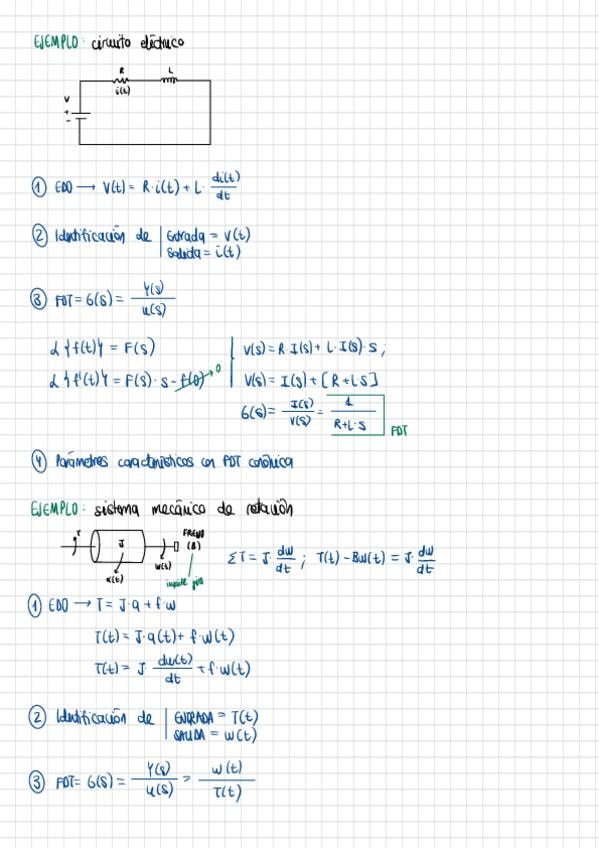 EJEMPLO: circuito eléctrico
R L
i(t)
V
+
-
① EDO → V(t) = R·i(t) + L· di(t)/dt
② Identificación de | Entrada = V(t)
Salida = i(t)
③ FDT = G(s) = Y(s)/U(s)
L{f(t)} = F(s)
L{f'(t)} = F(s)·s - f(0) → 0
V(s) = R·I(s) + L·I(s)·s;
V(s) = I(s) + [R + LS]
G(s) = I(s)/V(s) = 1/(R+L·s) FDT
④ Parámetros característicos con FDT canónica
EJEMPLO: sistema mecánico de rotación
τ J FRENO
(B)
α(t) W(t) impide giro
ΣT = J· dw/dt ; T(t) - Bw(t) = J· dw/dt
① EDO → T = J·α + f·w
T(t) = J·α(t) + f·w(t)
T(t) = J· dw(t)/dt + f·w(t)
② Identificación de | ENTRADA = T(t)
SALIDA = W(t)
③ FDT = G(s) = Y(s)/U(s) = W(t)/T(t)